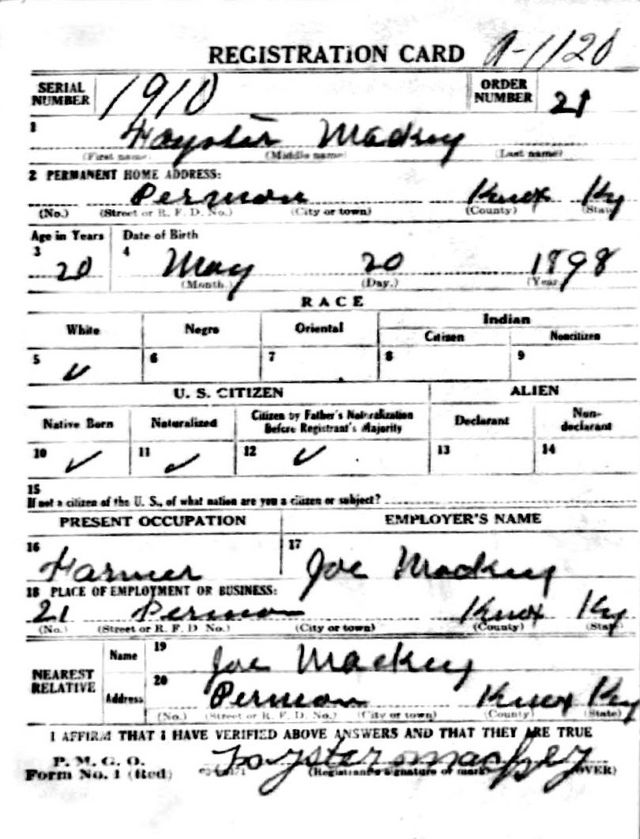 REGISTRATION CARD A-1120
SERIAL NUMBER 1910 ORDER NUMBER 21
1 Foyster Mackey
(First name) (Middle name) (Last name)
2 PERMANENT HOME ADDRESS:
Permon Knox Ky
(No.) (Street or R. F. D. No.) (City or town) (County) (State)
Age in Years Date of Birth
3 20 4 May 20 1898
(Month.) (Day.) (Year)
RACE
White Negro Oriental Indian
Citizen Noncitizen
5 ✓ 6 7 8 9
U. S. CITIZEN ALIEN
Native Born Naturalized Citizen by Father's Naturalization Before Registrant's Majority Declarant Non-declarant
10 ✓ 11 ✓ 12 ✓ 13 14
15
If not a citizen of the U. S., of what nation are you a citizen or subject?
PRESENT OCCUPATION EMPLOYER'S NAME
16 Farmer 17 Joe Mackey
18 PLACE OF EMPLOYMENT OR BUSINESS:
21 Permon Knox Ky
(No.) (Street or R. F. D. No.) (City or town) (County) (State)
NEAREST RELATIVE Name 19 Joe Mackey
Address 20 Permon Knox Ky
(No.) (Street or R. F. D. No.) (City or town) (County) (State)
I AFFIRM THAT I HAVE VERIFIED ABOVE ANSWERS AND THAT THEY ARE TRUE
P. M. G. O.
Form No. 1 (Red) (Registrant's signature or mark) (OVER)